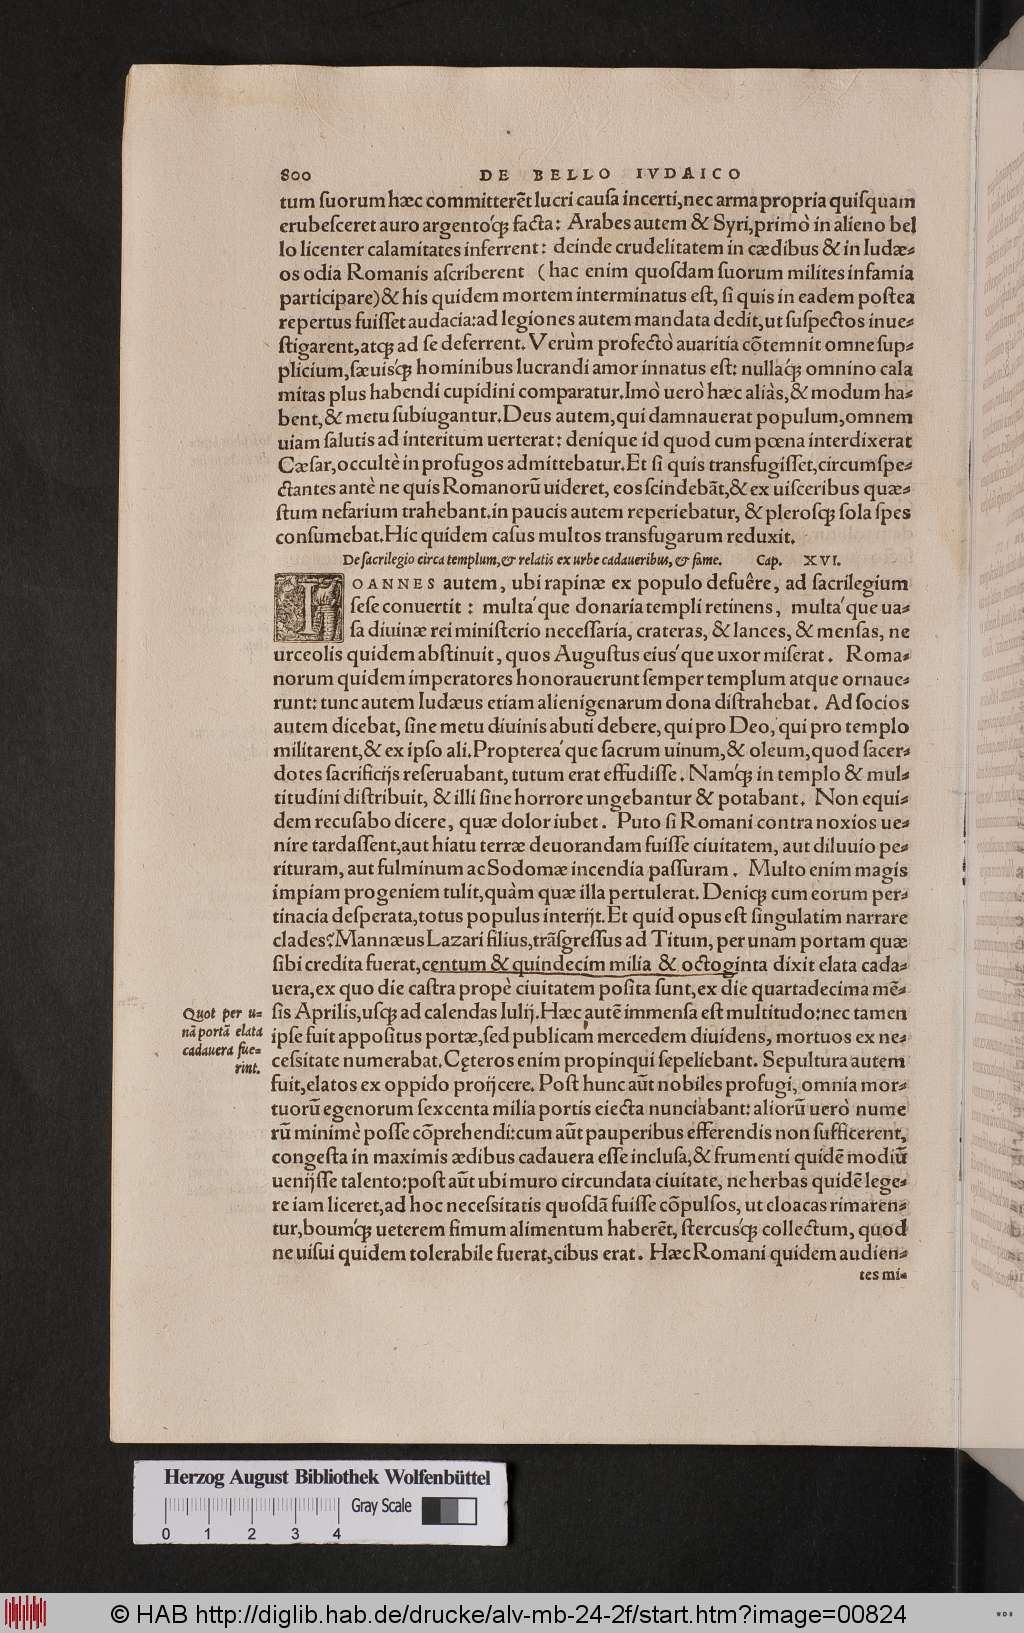 800 DE BELLO IVDAICO
tum ſuorum hæc committerẽt lucri cauſa incerti, nec arma propria quiſquam
erubeſceret auro argento'q́ʒ facta: Arabes autem & Syri, primò in alieno bel
lo licenter calamitates inferrent: deinde crudelitatem in cædibus & in Iudæ-
os odia Romanis aſcriberent (hac enim quoſdam ſuorum milites infamia
participare) & his quidem mortem interminatus eſt, ſi quis in eadem poſtea
repertus fuiſſet audacia: ad legiones autem mandata dedit, ut ſuſpectos inue-
ſtigarent, atqʒ ad ſe deferrent. Verùm profectò auaritia cõtemnit omne ſup-
plicium, ſæuis'q́ʒ hominibus lucrandi amor innatus eſt: nulla'q́ʒ omnino cala
mitas plus habendi cupidini comparatur. Imò uerò hæc aliàs, & modum ha-
bent, & metu ſubiugantur. Deus autem, qui damnauerat populum, omnem
uiam ſalutis ad interitum uerterat: denique id quod cum pœna interdixerat
Cæſar, occultè in profugos admittebatur. Et ſi quis transfugiſſet, circumſpe-
ctantes antè ne quis Romanorũ uideret, eos ſcindebãt, & ex uiſceribus quæ-
ſtum nefarium trahebant. in paucis autem reperiebatur, & pleroſqʒ ſola ſpes
conſumebat. Hic quidem caſus multos transfugarum reduxit.
De ſacrilegio circa templum, & relatis ex urbe cadaueribus, & fame. Cap. XVI.
IOANNES autem, ubi rapinæ ex populo defuêre, ad ſacrilegium
ſeſe conuertit: multa'que donaria templi retinens, multa'que ua-
ſa diuinæ rei miniſterio neceſſaria, crateras, & lances, & menſas, ne
urceolis quidem abſtinuit, quos Auguſtus eius'que uxor miſerat. Roma-
norum quidem imperatores honorauerunt ſemper templum atque ornaue-
runt: tunc autem Iudæus etiam alienigenarum dona diſtrahebat. Ad ſocios
autem dicebat, ſine metu diuinis abuti debere, qui pro Deo, qui pro templo
militarent, & ex ipſo ali. Propterea'que ſacrum uinum, & oleum, quod ſacer-
dotes ſacrificijs reſeruabant, tutum erat effudiſſe. Nam'q́ʒ in templo & mul-
titudini diſtribuit, & illi ſine horrore ungebantur & potabant. Non equi-
dem recuſabo dicere, quæ dolor iubet. Puto ſi Romani contra noxios ue-
nire tardaſſent, aut hiatu terræ deuorandam fuiſſe ciuitatem, aut diluuio pe-
rituram, aut fulminum ac Sodomæ incendia paſſuram. Multo enim magis
impiam progeniem tulit, quàm quæ illa pertulerat. Deniqʒ cum eorum per-
tinacia deſperata, totus populus interijt. Et quid opus eſt ſingulatim narrare
clades? Mannæus Lazari filius, trãſgreſſus ad Titum, per unam portam quæ
ſibi credita fuerat, centum & quindecim milia & octoginta dixit elata cada-
uera, ex quo die caſtra propè ciuitatem poſita ſunt, ex die quartadecima mẽ-
ſis Aprilis, uſqʒ ad calendas Iulij. Hæc autẽ immenſa eſt multitudo: nec tamen
ipſe fuit appoſitus portæ, ſed publicam mercedem diuidens, mortuos ex ne-
ceſsitate numerabat. Cęteros enim propinqui ſepeliebant. Sepultura autem
fuit, elatos ex oppido proijcere. Poſt hunc aũt nobiles profugi, omnia mor-
tuorũ egenorum ſexcenta milia portis eiecta nunciabant: aliorũ uerò nume
rũ minimè poſſe cõprehendi: cum aũt pauperibus efferendis non ſufficerent,
congeſta in maximis ædibus cadauera eſſe incluſa, & frumenti quidẽ modiũ
uenijſſe talento: poſt aũt ubi muro circundata ciuitate, ne herbas quidẽ lege-
re iam liceret, ad hoc neceſsitatis quoſdã fuiſſe cõpulſos, ut cloacas rimaren-
tur, boum'q́ʒ ueterem fimum alimentum haberẽt, ſtercus'q́ʒ collectum, quod
ne uiſui quidem tolerabile fuerat, cibus erat. Hæc Romani quidem audien-
tes mi-
Quot per u-
nã portã elata
cadauera fue-
rint.
Herzog August Bibliothek Wolfenbüttel
Gray Scale
0 1 2 3 4
© HAB http://diglib.hab.de/drucke/alv-mb-24-2f/start.htm?image=00824